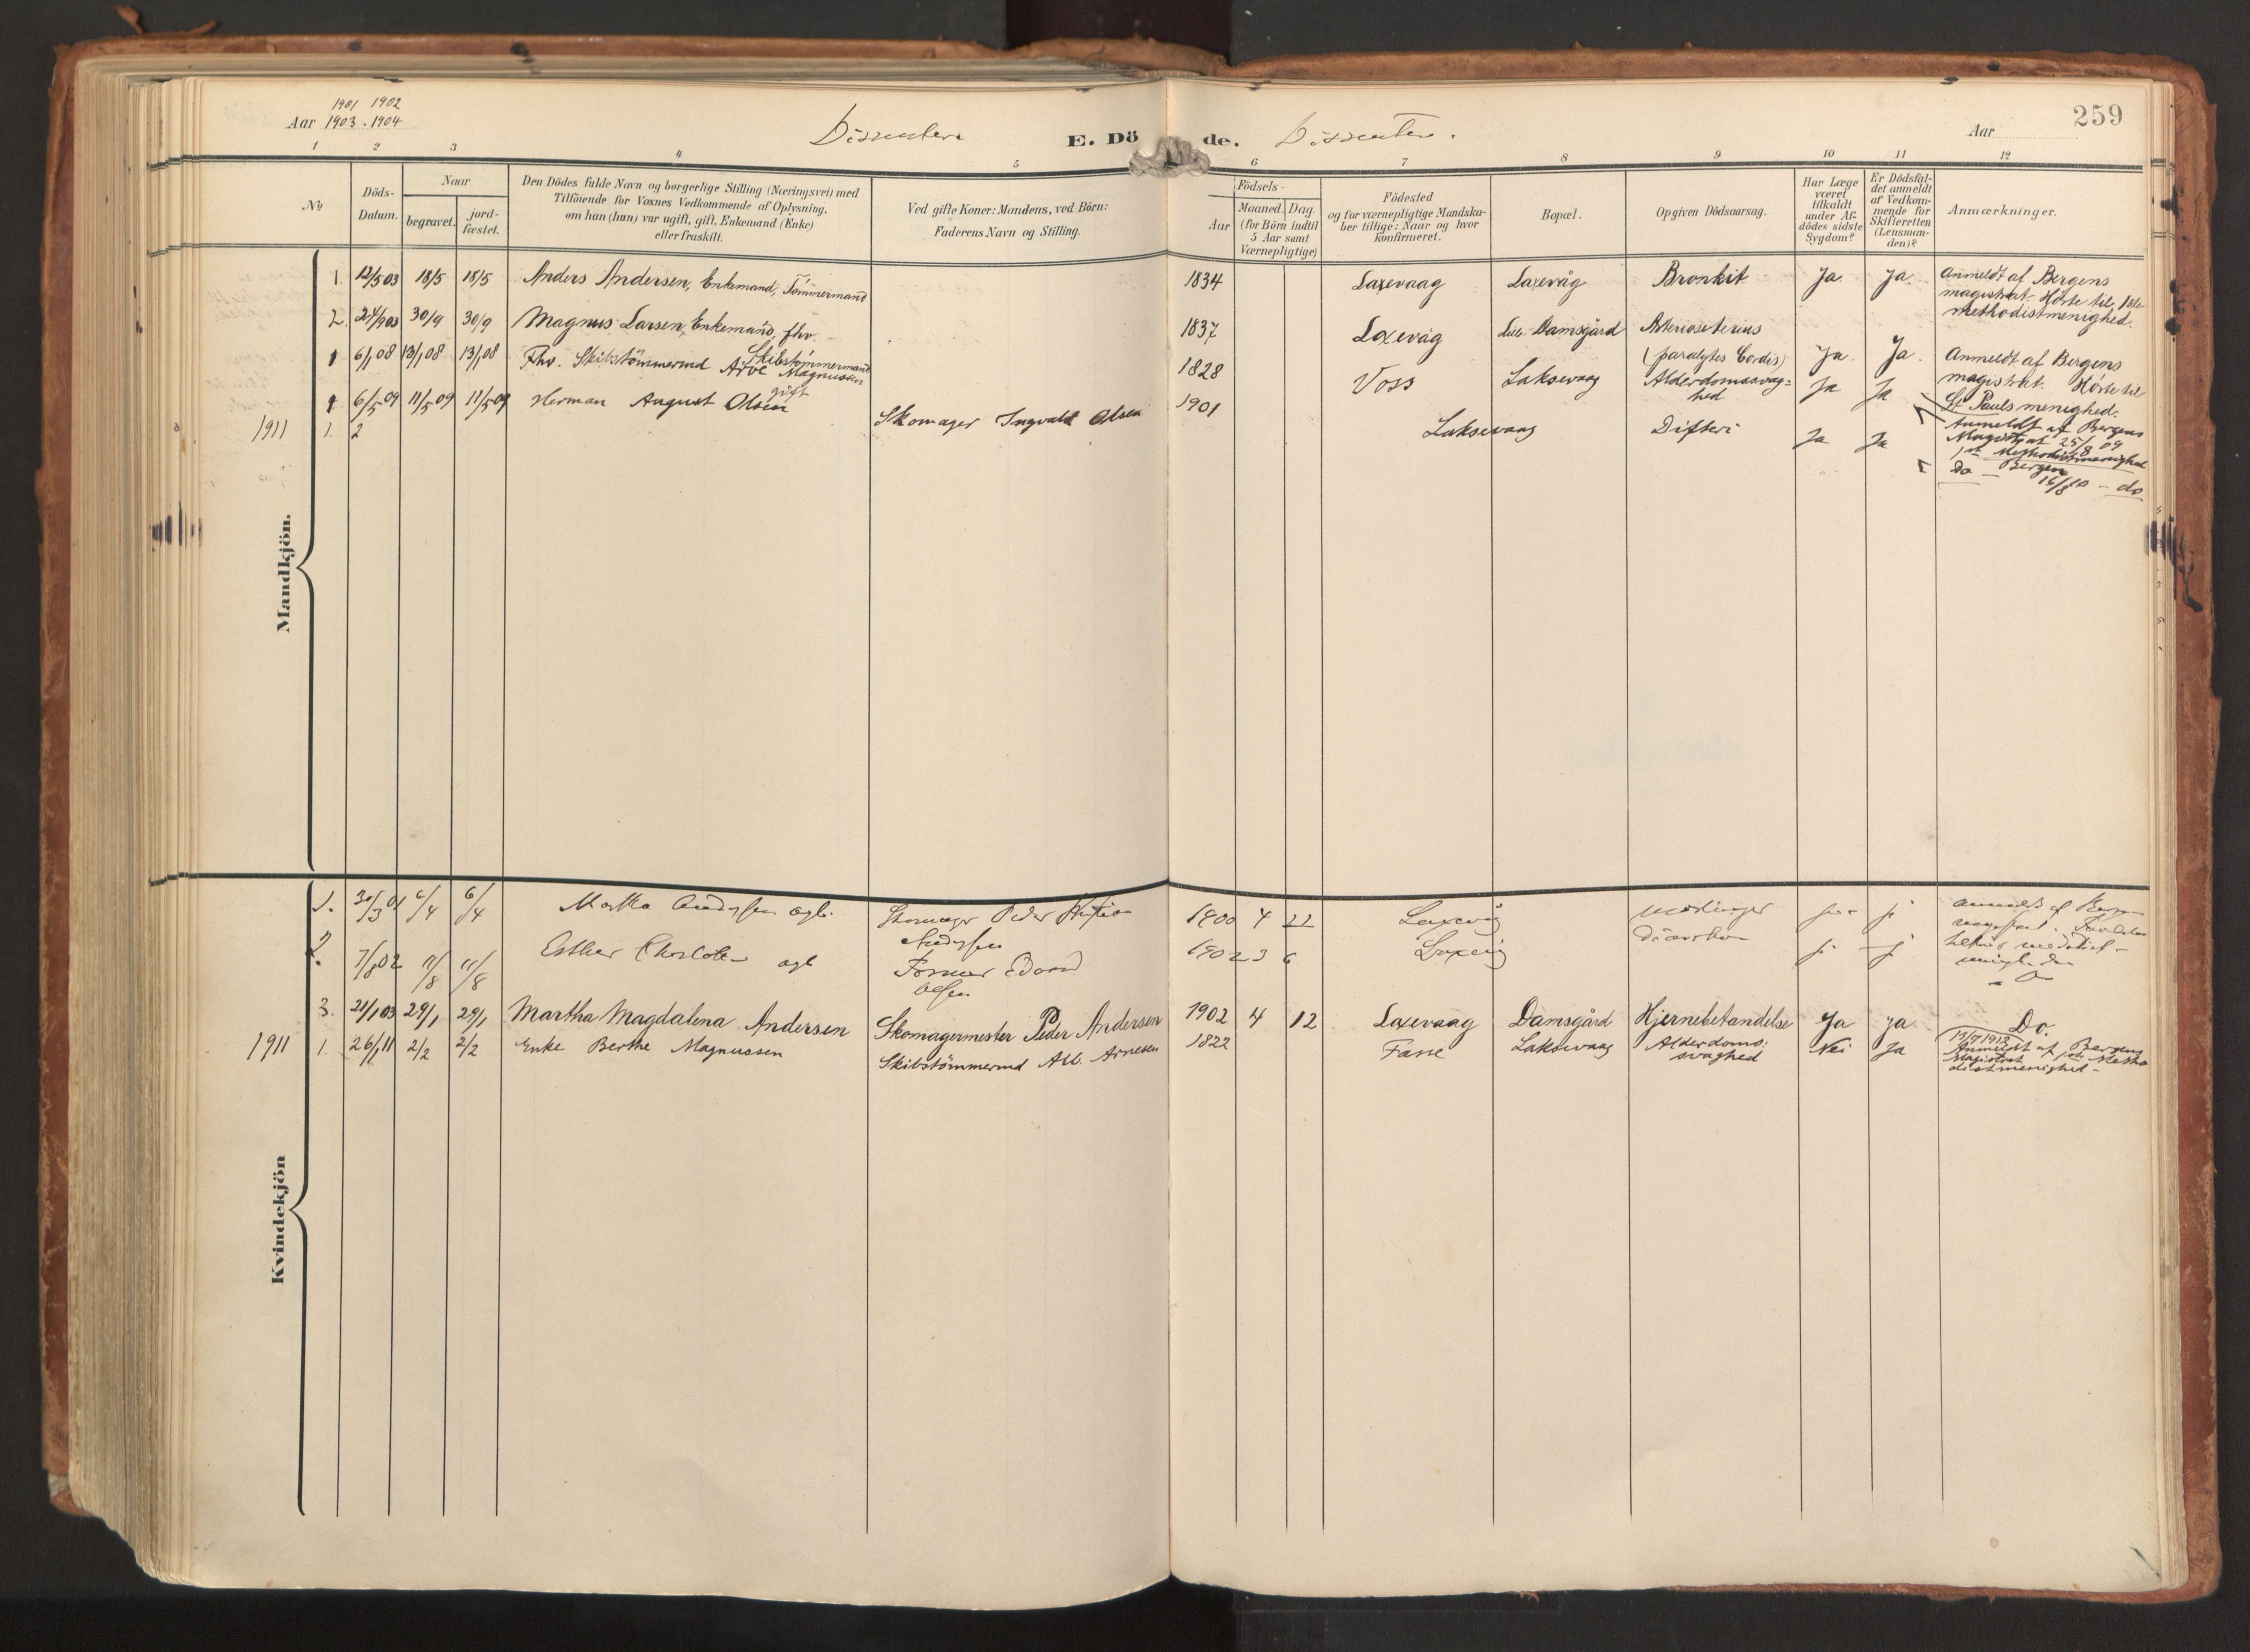 1901 1902
Aar 1903 - 1904
Dissentere
E. Döde.
Dissentere.
Aar
259
1 2 3 4 5 6 7 8 9 10 11 12
No
Döds-Datum.
Naar
begravet.
jord-fæstet.
Den Dödes fulde Navn og borgerlige Stilling (Næringsvei) med
Tilföiende for Voxnes Vedkommende af Oplysning,
om han (hun) var ugift, gift, Enkemand (Enke)
eller fraskilt.
Ved gifte Koner: Mandens, ved Börn:
Faderens Navn og Stilling.
Födsels-
Aar
Maaned. Dag.
(for Börn indtil
5 Aar samt
Værnepligtige)
Födested
og for værnepligtige Mandska-
ber tillige: Naar og hvor
konfirmeret.
Bopæl.
Opgiven Dödsaarsag.
Har Læge
været
tilkaldt
under Af-
dödes sidste
Sygdom?
Er Dödsfal-
det anmeldt
af Vedkom-
mende for
Skifteretten
(Lensman-
den)?
Anmærkninger.
Mandkjön.
1. 12/5 03 18/5 18/5 Anders Andersen, Enkemand, Tömmermand 1834 Laxevaag Laxevåg Bronkit Ja. Ja. Anmeldt af Bergens
magistrat. Hörte til 1ste
methodistmenighed.
2. 24/9 03 30/9 30/9 Magnus Larsen, Enkemand, fhv. Skibstömmermand 1837 Laxevåg Damsgård
(paralytes Cordis) Ja. Ja. Anmeldt af Bergens
magistrat. Hörte til
St Pauls menighed.
1 6/1 08 13/1 08 13/1 08 Fhv. Skibstömmermd Arve Magnussen gift 1828 Voss Laksevaag Alderdomssvag=
hed Ja Ja Anmeldt af Bergens
Magistrat 25/8 09
1st Methodistmenighed
Bergen
1 6/5 09 11/5 09 11/5 09 Herman August Olsen Skomager Ingvald Olsen 1901 Laksevaag Difteri Ja Ja Do 16/8 10 - do
1911 1. 2
Kvindekjön
1. 30/3 01 6/4 6/4 Martha Skomager Peder
1900 4 22 Laxevåg
2. 7/8 02 11/8 11/8 Esther Charlotte Former Edvard
Olsen 1902 3 6 Laxevåg
3. 21/1 03 29/1 29/1 Martha Magdalena Andersen Skomagermester Peder Andersen 1902 4 12 Laxevaag Damsgård Hjernebetændelse Ja Ja. Do.
1911 1. 26/1 11 2/2 2/2 Enke Berthe Magnussen Skibstömmermd Arnesen 1822 Fane Laksevaag Alderdoms-
svaghed Nei Ja Anmeldt af Bergens
Magistrat 1ste Metho
distmenighed -